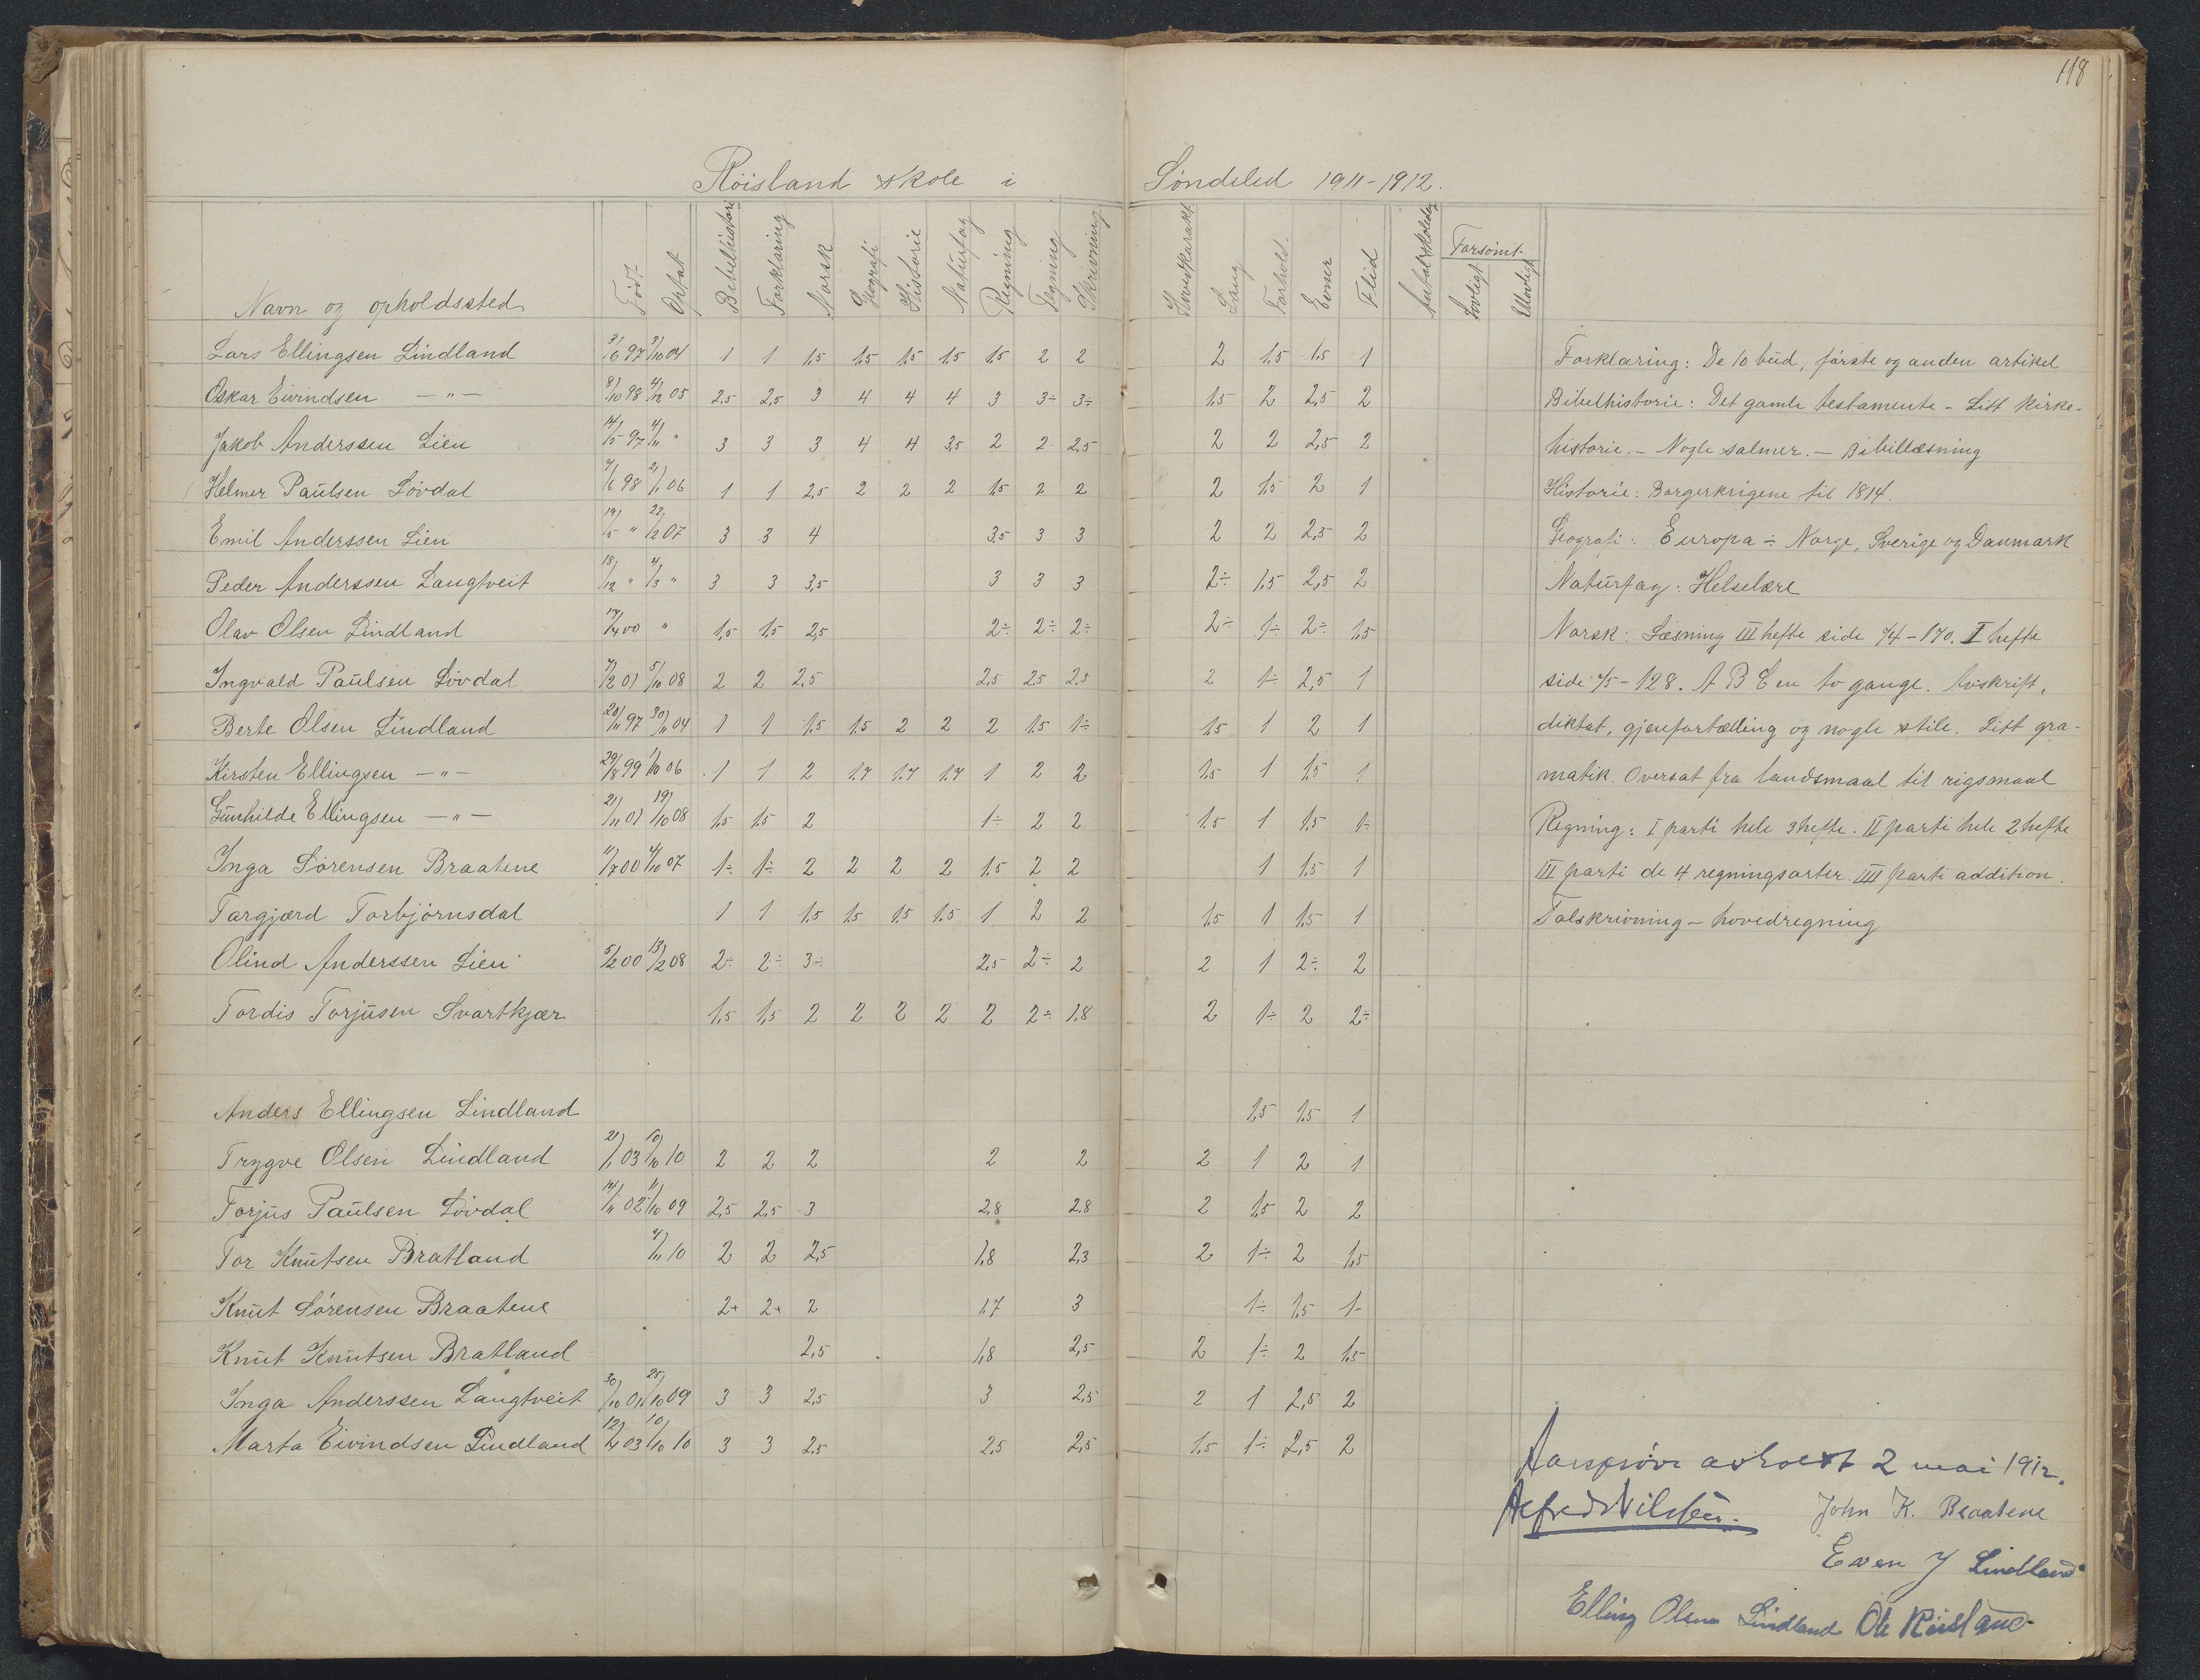 118
Röisland skole i Söndeled 1911-1912.
Navn og opholdssted Född Optat Bibelhistorie Forklaring Norsk Geografi Historie Naturfag Regning Tegning Skrivning Hovedkarakt. Sang Forhold Evner Flid Antal skoledag Forsömt Lovligt Ulovligt
Lars Ellingsen Lindland 3/6 97 04 1 1 1,5 1,5 1,5 1,5 1,5 2 2 2 1,5 1,5 1
Oskar Eivindsen —"— 8/10 98 4/12 05 2,5 2,5 3 4 4 4 3 3÷ 3÷ 1,5 2 2,5 2
Jakob Anderssen Lien 14/5 97 4/11 " 3 3 3 4 4 3,5 2 2 2,5 2 2 2,5 2
Helmer Paulsen Lövdal 98 06 1 1 2,5 2 2 2 1,5 2 2 2 1,5 2 1
Emil Anderssen Lien 19/5 " 22/2 07 3 3 4 3,5 3 3 2 2 2,5 2
Peder Anderssen Langtveit 18/12 " 4/3 " 3 3 3,5 3 3 3 2÷ 1,5 2,5 2
Olav Olsen Lindland 17/4 00 " 1,5 1,5 2,5 2÷ 2÷ 2÷ 2÷ 1÷ 2÷ 1,5
Ingvald Paulsen Lövdal 7/2 01 5/10 08 2 2 2,5 2,5 2,5 2,5 2 1÷ 2,5 1
Berte Olsen Lindland 20/11 97 30/11 04 1 1 1,5 1,5 2 2 2 1,5 1÷ 1,5 1 2 1
Kirsten Ellingsen —"— 29/8 99 1/10 06 1 1 2 1,7 1,7 1,7 1 2 2 1,5 1 1,5 1
Gunhilde Ellingsen —"— 21/11 01 19/10 08 1,5 1,5 2 1÷ 2 2 1,5 1 1,5 1÷
Inga Sörensen Braatene 11/7 00 4/10 07 1÷ 1÷ 2 2 2 2 1,5 2 2 1 1,5 1
Targjærd Torbjörnsdal 1 1 1,5 1,5 1,5 1,5 1 2 2 1,5 1 1,5 1
Olind Anderssen Lien 5/2 00 13/2 08 2÷ 2÷ 3÷ 2,5 2÷ 2 2 1 2÷ 2
Tordis Torjusen Svartkjær 1,5 1,5 2 2 2 2 2 2÷ 1,8 2 1÷ 2 2÷
Anders Ellingsen Lindland 1,5 1,5 1
Trygve Olsen Lindland 21/1 03 10/10 10 2 2 2 2 2 2 1 2 1
Torjus Paulsen Lövdal 14/11 02 11/10 09 2,5 2,5 3 2,8 2,8 2 1,5 2 2
Tor Knutsen Bratland 10 2 2 2,5 1,8 2,3 2 1÷ 2 1,5
Knut Sörensen Braatene 2+ 2+ 2 1,7 3 1÷ 1,5 1-
Knut Knutsen Bratland 2,5 1,8 2,5 2 1÷ 2 1,5
Inga Anderssen Langtveit 30/10 01 25/10 09 3 3 2,5 3 2,5 2 1 2,5 2
Marta Eivindsen Lindland 12/4 03 10/10 10 3 3 2,5 2,5 2,5 1,5 1÷ 2,5 2
Forklaring: De 10 bud, förste og anden artikel
Bibelhistorie: Det gamle testamente - Litt kirke-
historie. - Nogle salmer. - Bibellæsning
Historie: Borgerkrigene til 1814.
Geografi: Europa ÷ Norge, Sverige og Danmark
Naturfag: Helselære
Norsk: Læsning III hefte side 74-170. I hefte
side 75-128. A B C en to gange. Avskrift,
diktat, gjenfortælling og nogle stile. Litt gra-
matik. Oversat fra landsmaal til rigsmaal
Regning: I parti hele 3 hefte. II parti hele 2 hefte
III parti de 4 regningsarter. IIII parti addition.
Talskrivning - hovedregning
Aarspröve avholdt 2 mai 1912.
Alfred Nilssen. John K. Braatene
Even J Lindland
Elling Olsen Lindland Ole Röisland